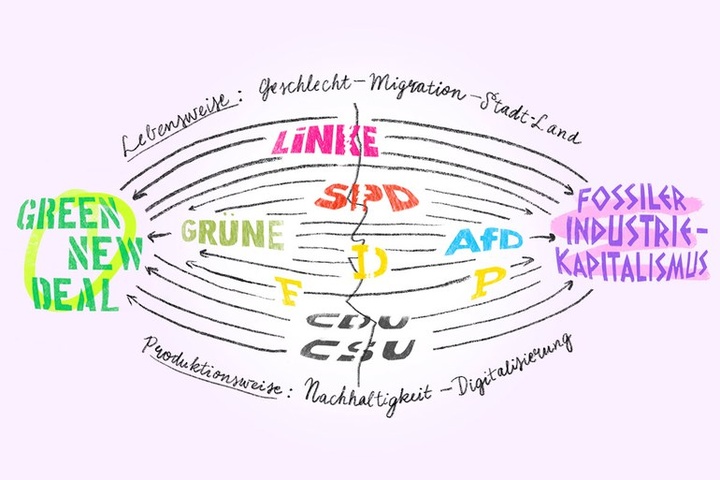 Lebensweise: Geschlecht-Migration-Stadt-Land
LiNKE
SPD
GREEN
NEW
DEAL
GRÜNE
AfD
FOSSILER
INDUSTRIE-
KAPITALISMUS
F D P
CDU
CSU
Produktionsweise: Nachhaltigkeit-Digitalisierung